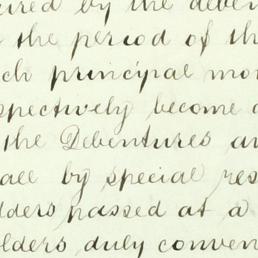 ired by the deben
the period of th
ch principal mon
spectively become
the Debentures an
all by special res
lders passed at a
olders duly conven